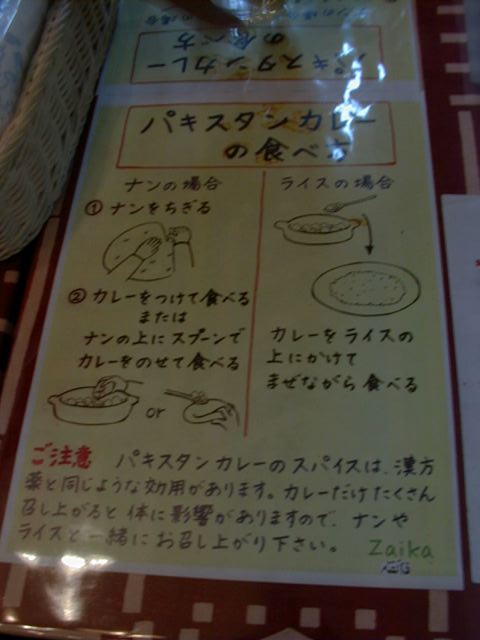 ナンの場合
の食べ方
パキスタンカレー
パキスタンカレー
の食べ方
ナンの場合
① ナンをちぎる
② カレーをつけて食べる
または
ナンの上にスプーンで
カレーをのせて食べる
or
ライスの場合
カレーをライスの
上にかけて
まぜながら食べる
ご注意 パキスタンカレーのスパイスは、漢方
薬と同じような効用があります。カレーだけたくさん
召し上がると体に影響がありますので、ナンや
ライスと一緒にお召し上がり下さい。
Zaika